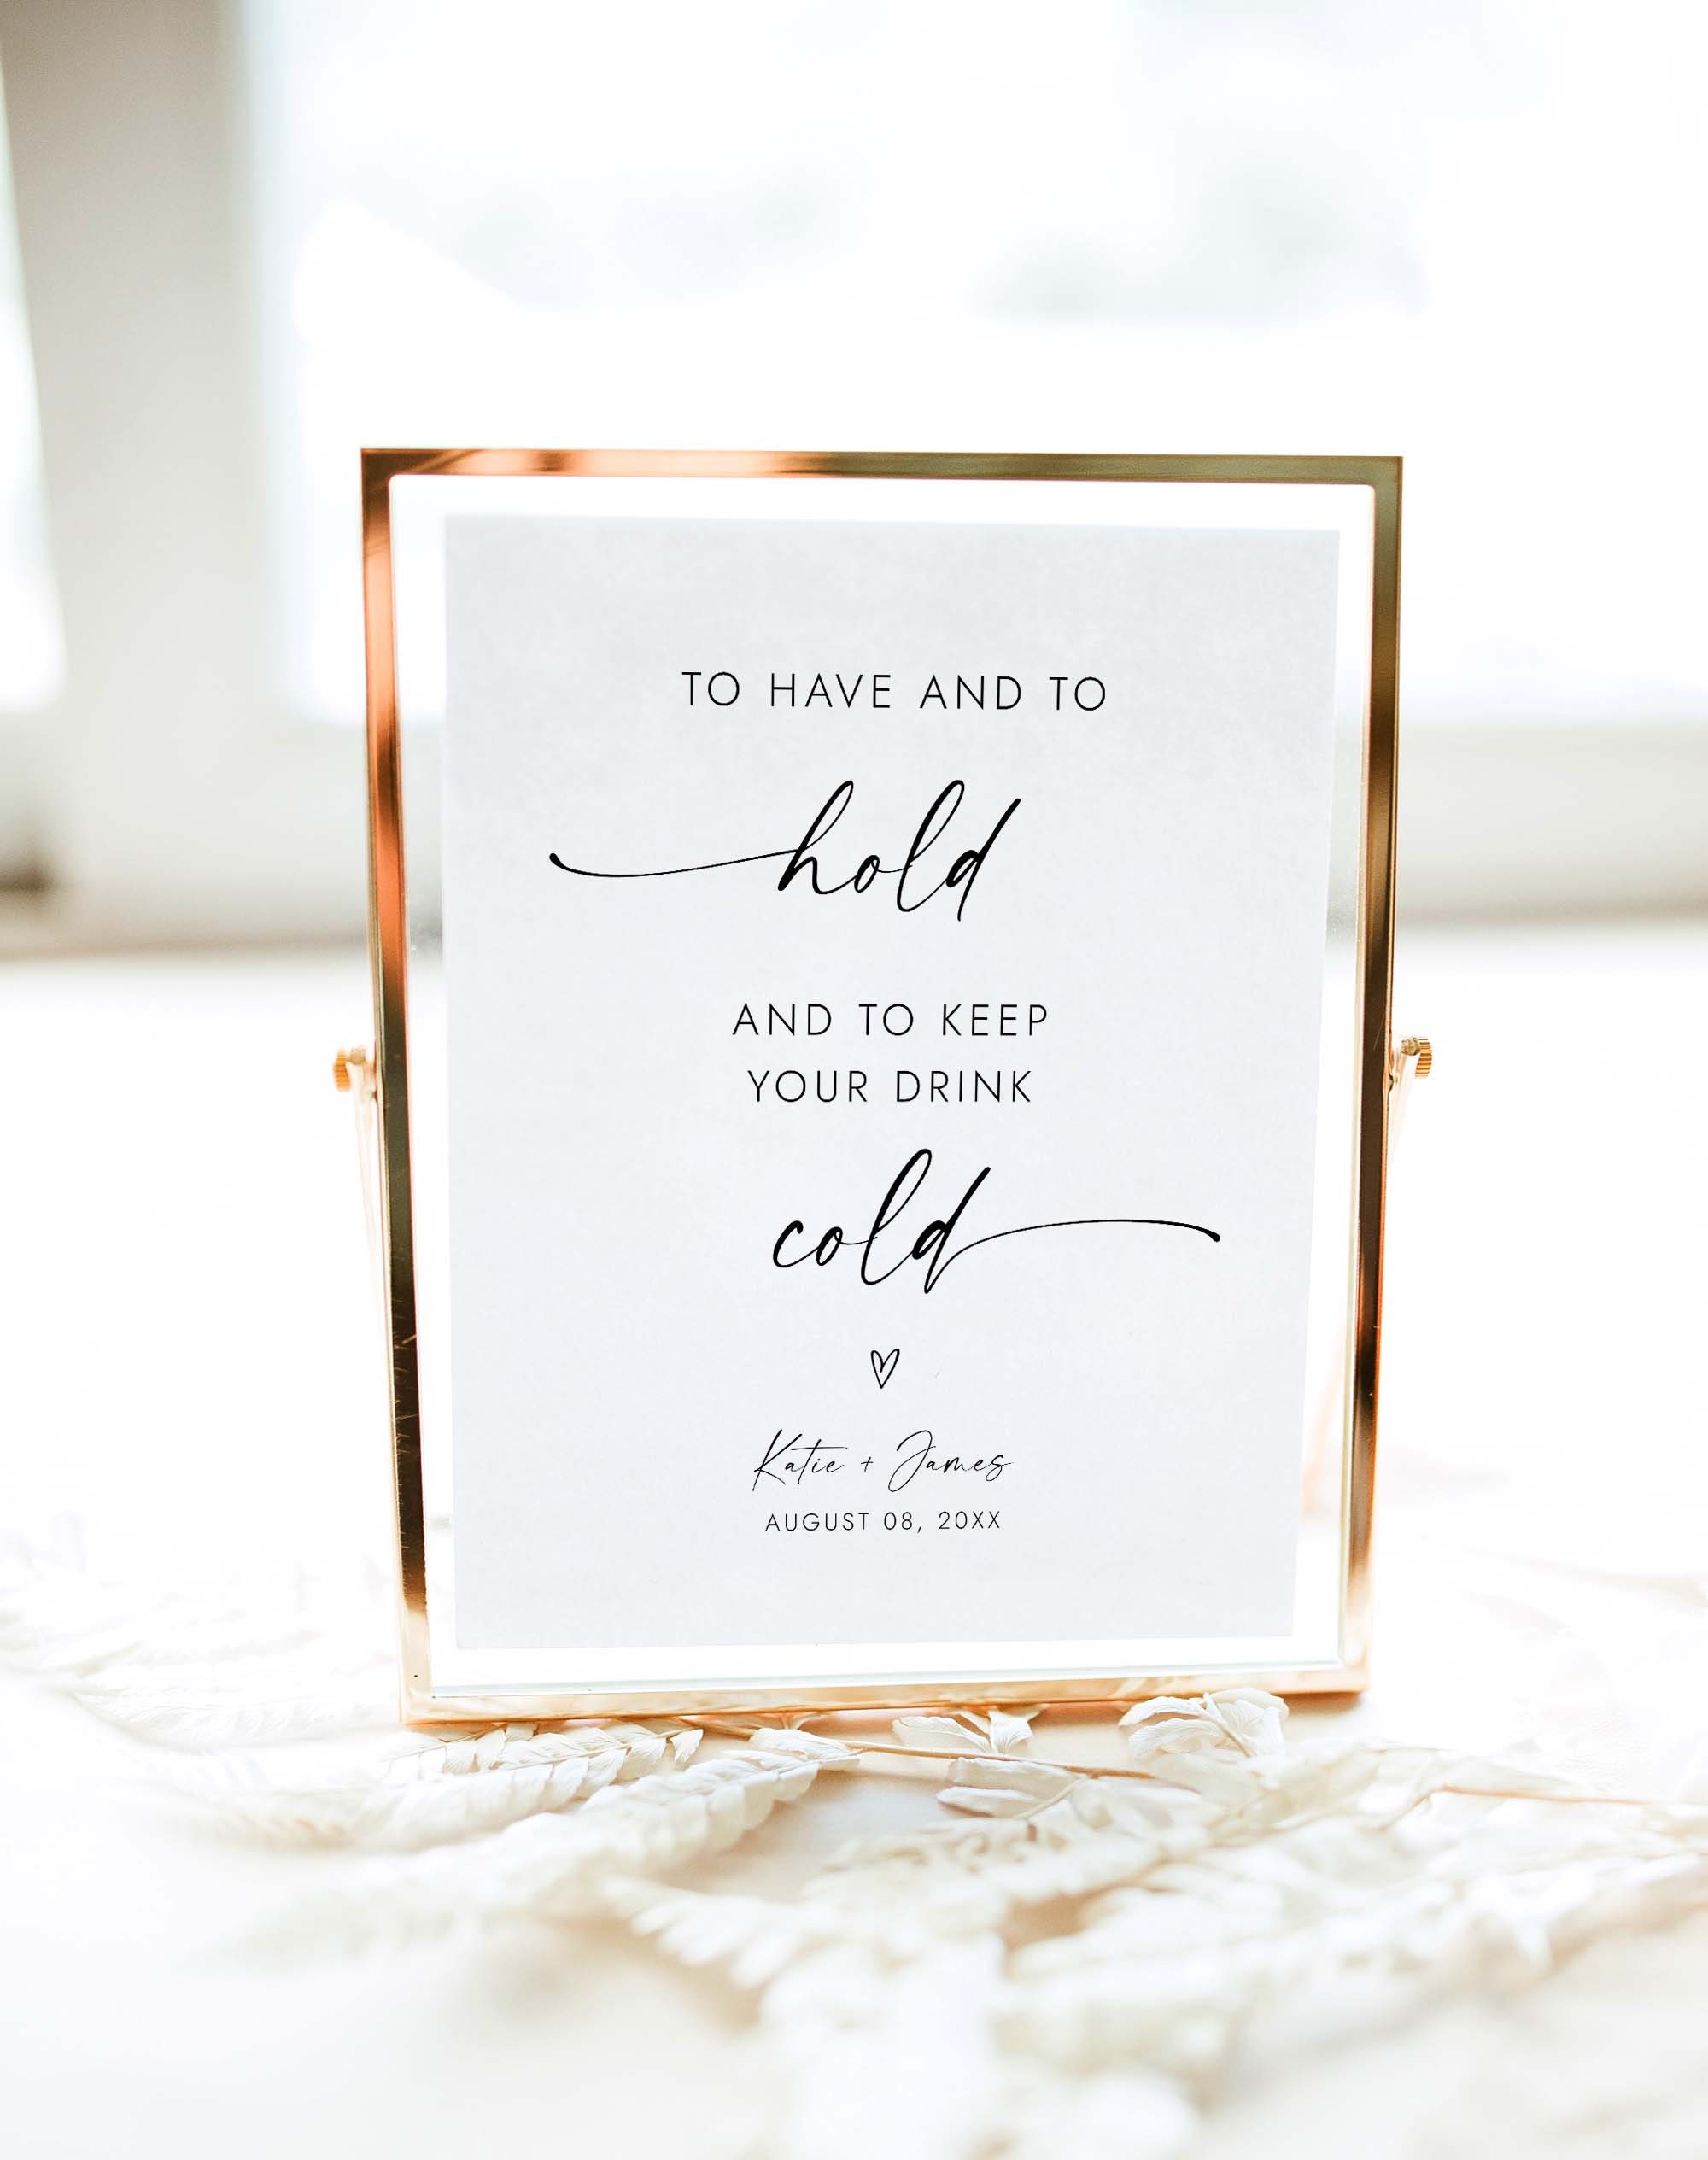 TO HAVE AND TO
hold
AND TO KEEP
YOUR DRINK
cold
Katie + James
AUGUST 08, 20XX